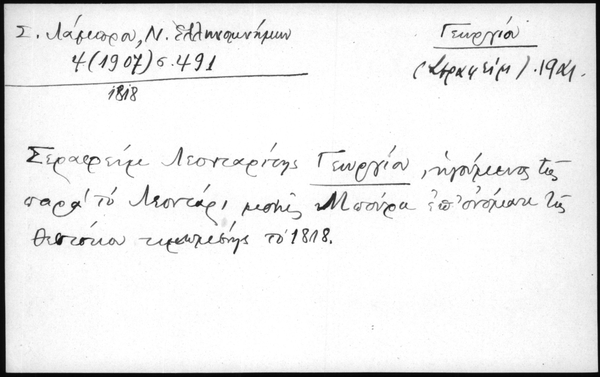 Σ. Λάμπρου, Ν. Ἑλληνομνήμων
4 (1907) σ. 491
1818
Γεωργίου
(Σεραφείμ)
Σεραφείμ Λεονταρίτης Γεωργίου, ἡγούμενος τῆς
παρὰ τὸ Λεοντάρι μονῆς Μπούρα ἐπ' ὀνόματι τῆς
Θεοτόκου τιμωμένης τὸ 1818.